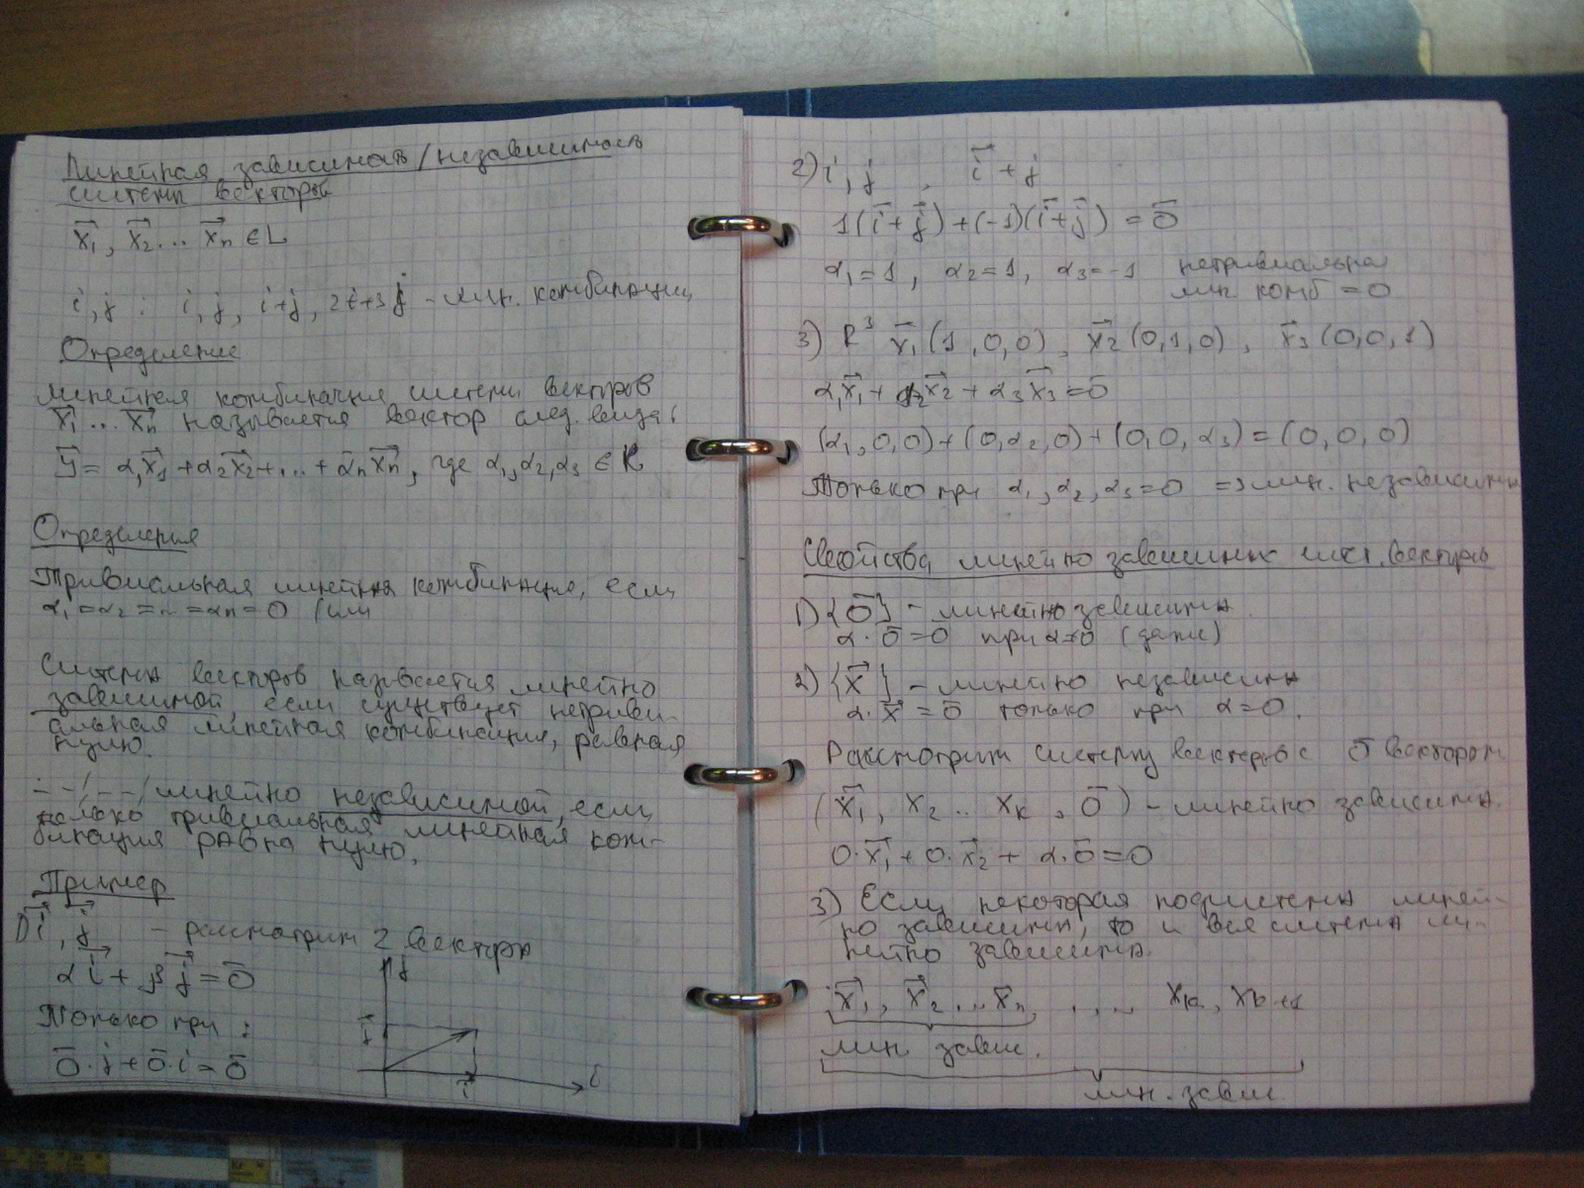 Линейная зависимость/независимость
системы векторов
x₁, x₂... xₙ ∈ L
i, j : i, j, i+j, 2i+3j - лин. комбинации
Определение
Линейная комбинация системы векторов
x₁ ... xₙ называется вектор след. вида:
y = α₁x₁ + α₂x₂+...+ αₙxₙ, где α₁,α₂,α₃ ∈ R
Определения
Тривиальная линейная комбинация, если
α₁=α₂=...=αn=0 (или
Система векторов называется линейно
зависимой если существует нетриви-
альная линейная комбинация, равная
нулю.
- -/- -/ линейно независимой, если
только тривиальная линейная ком-
бинация равна нулю.
Пример
1) i, j - рассмотрим 2 вектора
αi + βj = 0
j
Только при :
j
0·j+0·i=0
i
i
2) i, j , i + j
1(i + j) + (-1)(i+j) = 0
α₁=1, α₂=1, α₃=-1 нетривиальная
лин. комб = 0
3) R³ x₁(1,0,0), x₂(0,1,0), x₃(0,0,1)
α₁x₁ + α₂x₂ + α₃x₃=0
(α₁,0,0)+(0,α₂,0)+(0,0,α₃)=(0,0,0)
Только при α₁,α₂,α₃=0 => лин. независимы
Свойства линейно зависимых сист. векторов
1) {0} - линейно зависима
α·0=0 при α≠0 (даже)
2) {x} - линейно независима
α·x = 0 только при α=0.
Рассмотрим систему векторов с 0 вектором
(x₁, x₂ .. xₖ, 0) - линейно зависима.
0·x₁+0·x₂ + α·0=0
3) Если некоторая подсистема линей-
но зависима, то и вся система ли-
нейно зависима.
x₁, x₂ ... xₙ, ... xₖ, xₖ₊₁
лин завис.
лин. завис